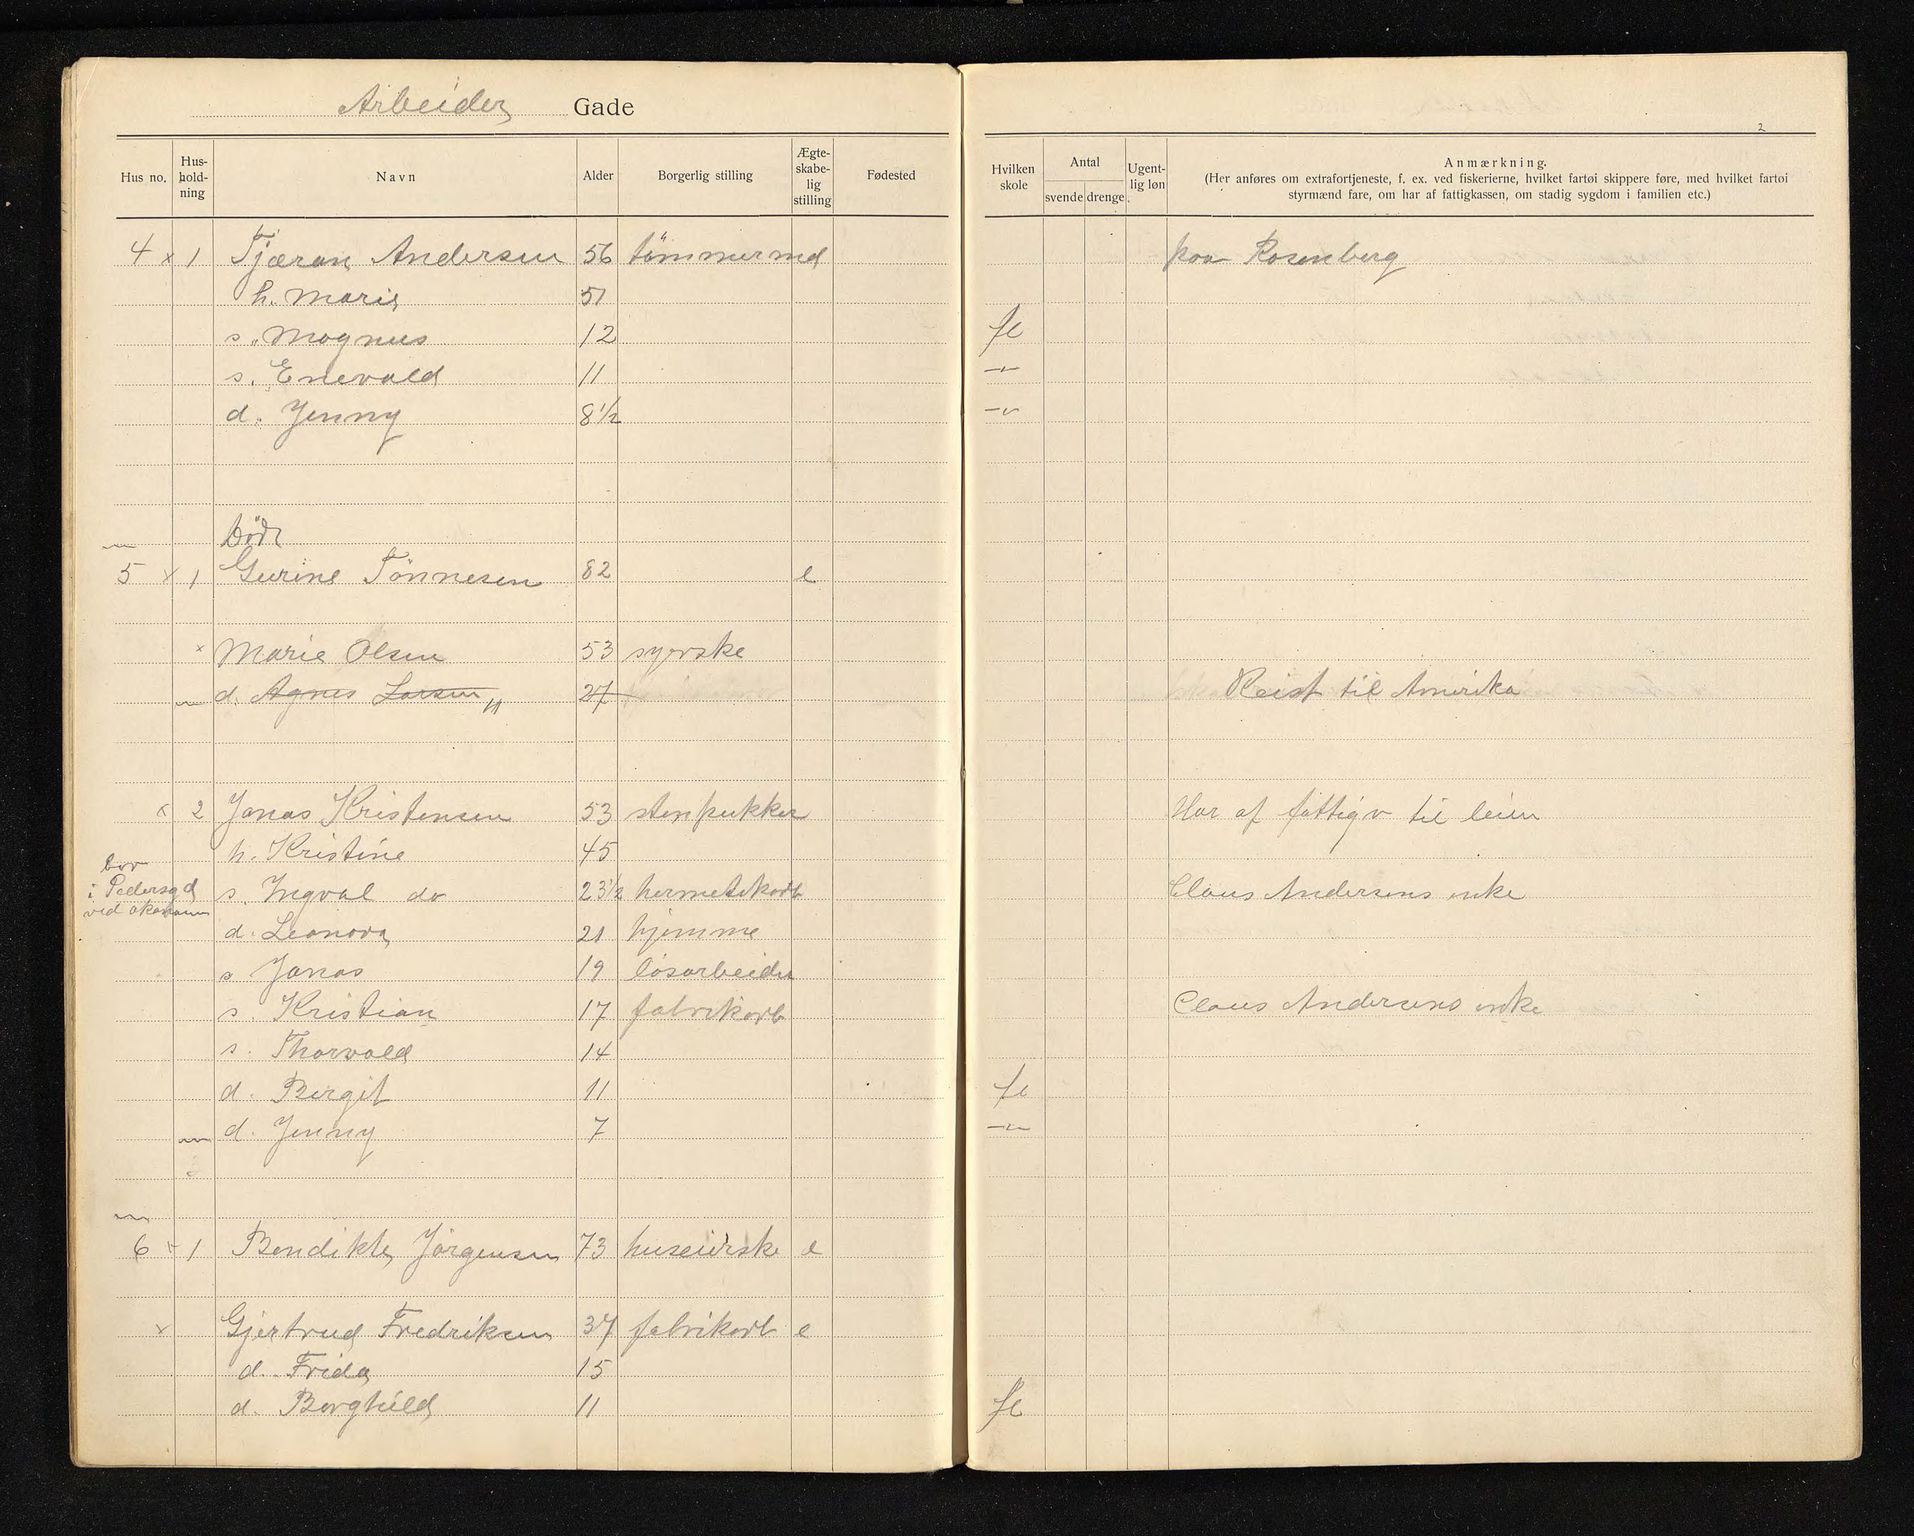 Arbeider Gade
2
Hus no. Hus-hold-ning Navn Alder Borgerlig stilling Ægte-skabe-lig stilling Fødested Hvilken skole Antal svende drenge Ugent-lig løn Anmærkning.
(Her anføres om extrafortjeneste, f. ex. ved fiskerierne, hvilket fartøi skippere føre, med hvilket fartøi
styrmænd fare, om har af fattigkassen, om stadig sygdom i familien etc.)
4 x 1 Tjæran Andersen 56 tømmermd paa Rosenberg
h. Marie 51
s. Magnus 12 fl
s. Enevald 11 –"–
d. Jenny 8½ –"–
Død
5 x 1 Gurine Tønnesen 82 e
x Marie Olsen 53 syerske
d. Agnes Larsen 27 Reist til Amerika
x 2 Jonas Kristensen 53 stenpukker Har af fattigv til leien
h. Kristine 45
bor
i Pedersgd s. Ingval do 23½ hermetikarb Claus Andersens enke
ved
d. Leonora 21 hjemme
s Jonas 19 løsarbeider
s. Kristian 17 fabrikarb Claus Andersens enke
s. Thorvald 14
d. Bergit 11 fl
d. Jenny 7 –"–
6 x 1 Bendikte Jørgensen 73 huseierske e
x Gjertrud Fredriksen 37 fabrikarb e
d. Frida 15
d. Borghild 11 fl